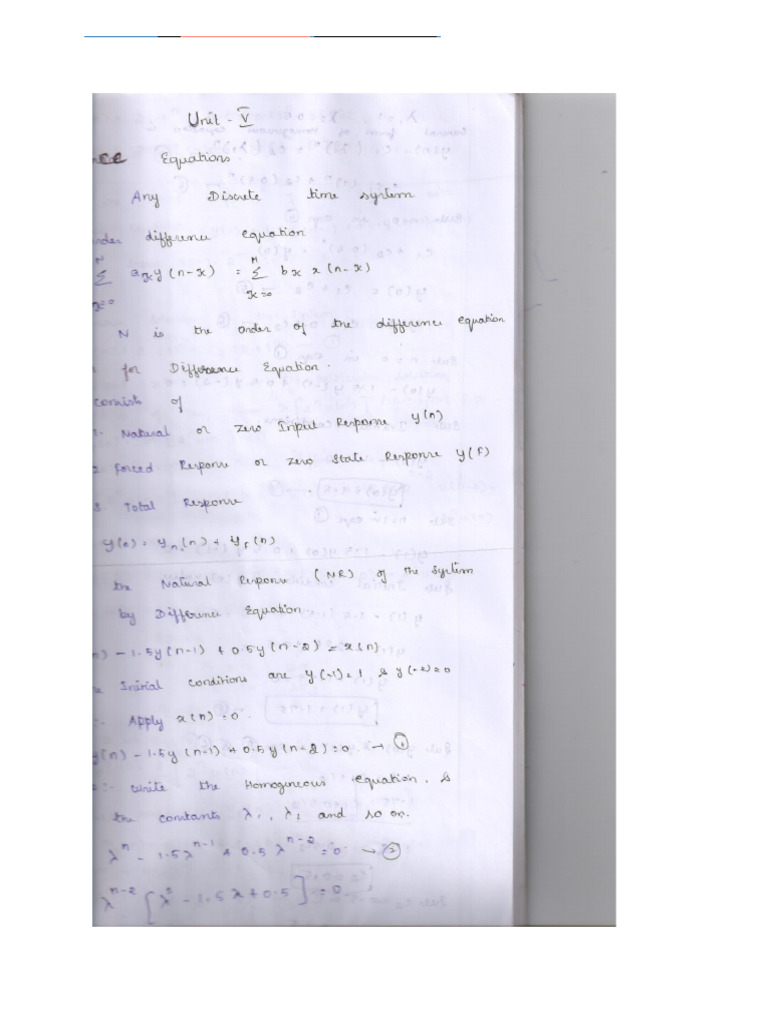 Unit - V
nce Equations.
Any Discrete time system
order difference equation
N M
Σ aₖ y(n-k) = Σ bₖ x(n-k)
k=0 k=0
N is the order of the difference equation
for Difference Equation.
consists of
1. Natural or Zero Input Response y(n)
2. Forced Response or Zero State Response y(F)
3 Total Response
y(n) = yₙ(n) + y_f(n)
the Natural Response (NR) of the system
by Difference Equation
n) - 1.5y(n-1) + 0.5y(n-2) = x(n)
Initial conditions are y(-1)=1 & y(-2)=0
:- Apply x(n)=0.
y(n) - 1.5y(n-1) + 0.5y(n-2)=0 → ①
:- write the Homogineous equation, &
the constants λ₁, λ₂ and so on.
λⁿ - 1.5λⁿ⁻¹ + 0.5λⁿ⁻² = 0 → ②
λⁿ⁻² [λ² - 1.5λ + 0.5] = 0